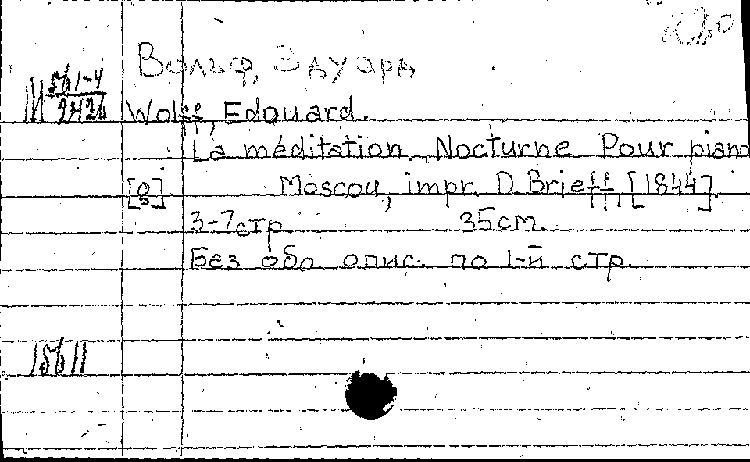 Вольф, Эдуард
М 561-4
2426
Wolff, Edouard.
La méditation. Nocturne Pour piano
[0] Moscou, impr. D. Brieff, [1844].
3-7 стр. 35 см.
Без обл. опис. по 1-й стр.